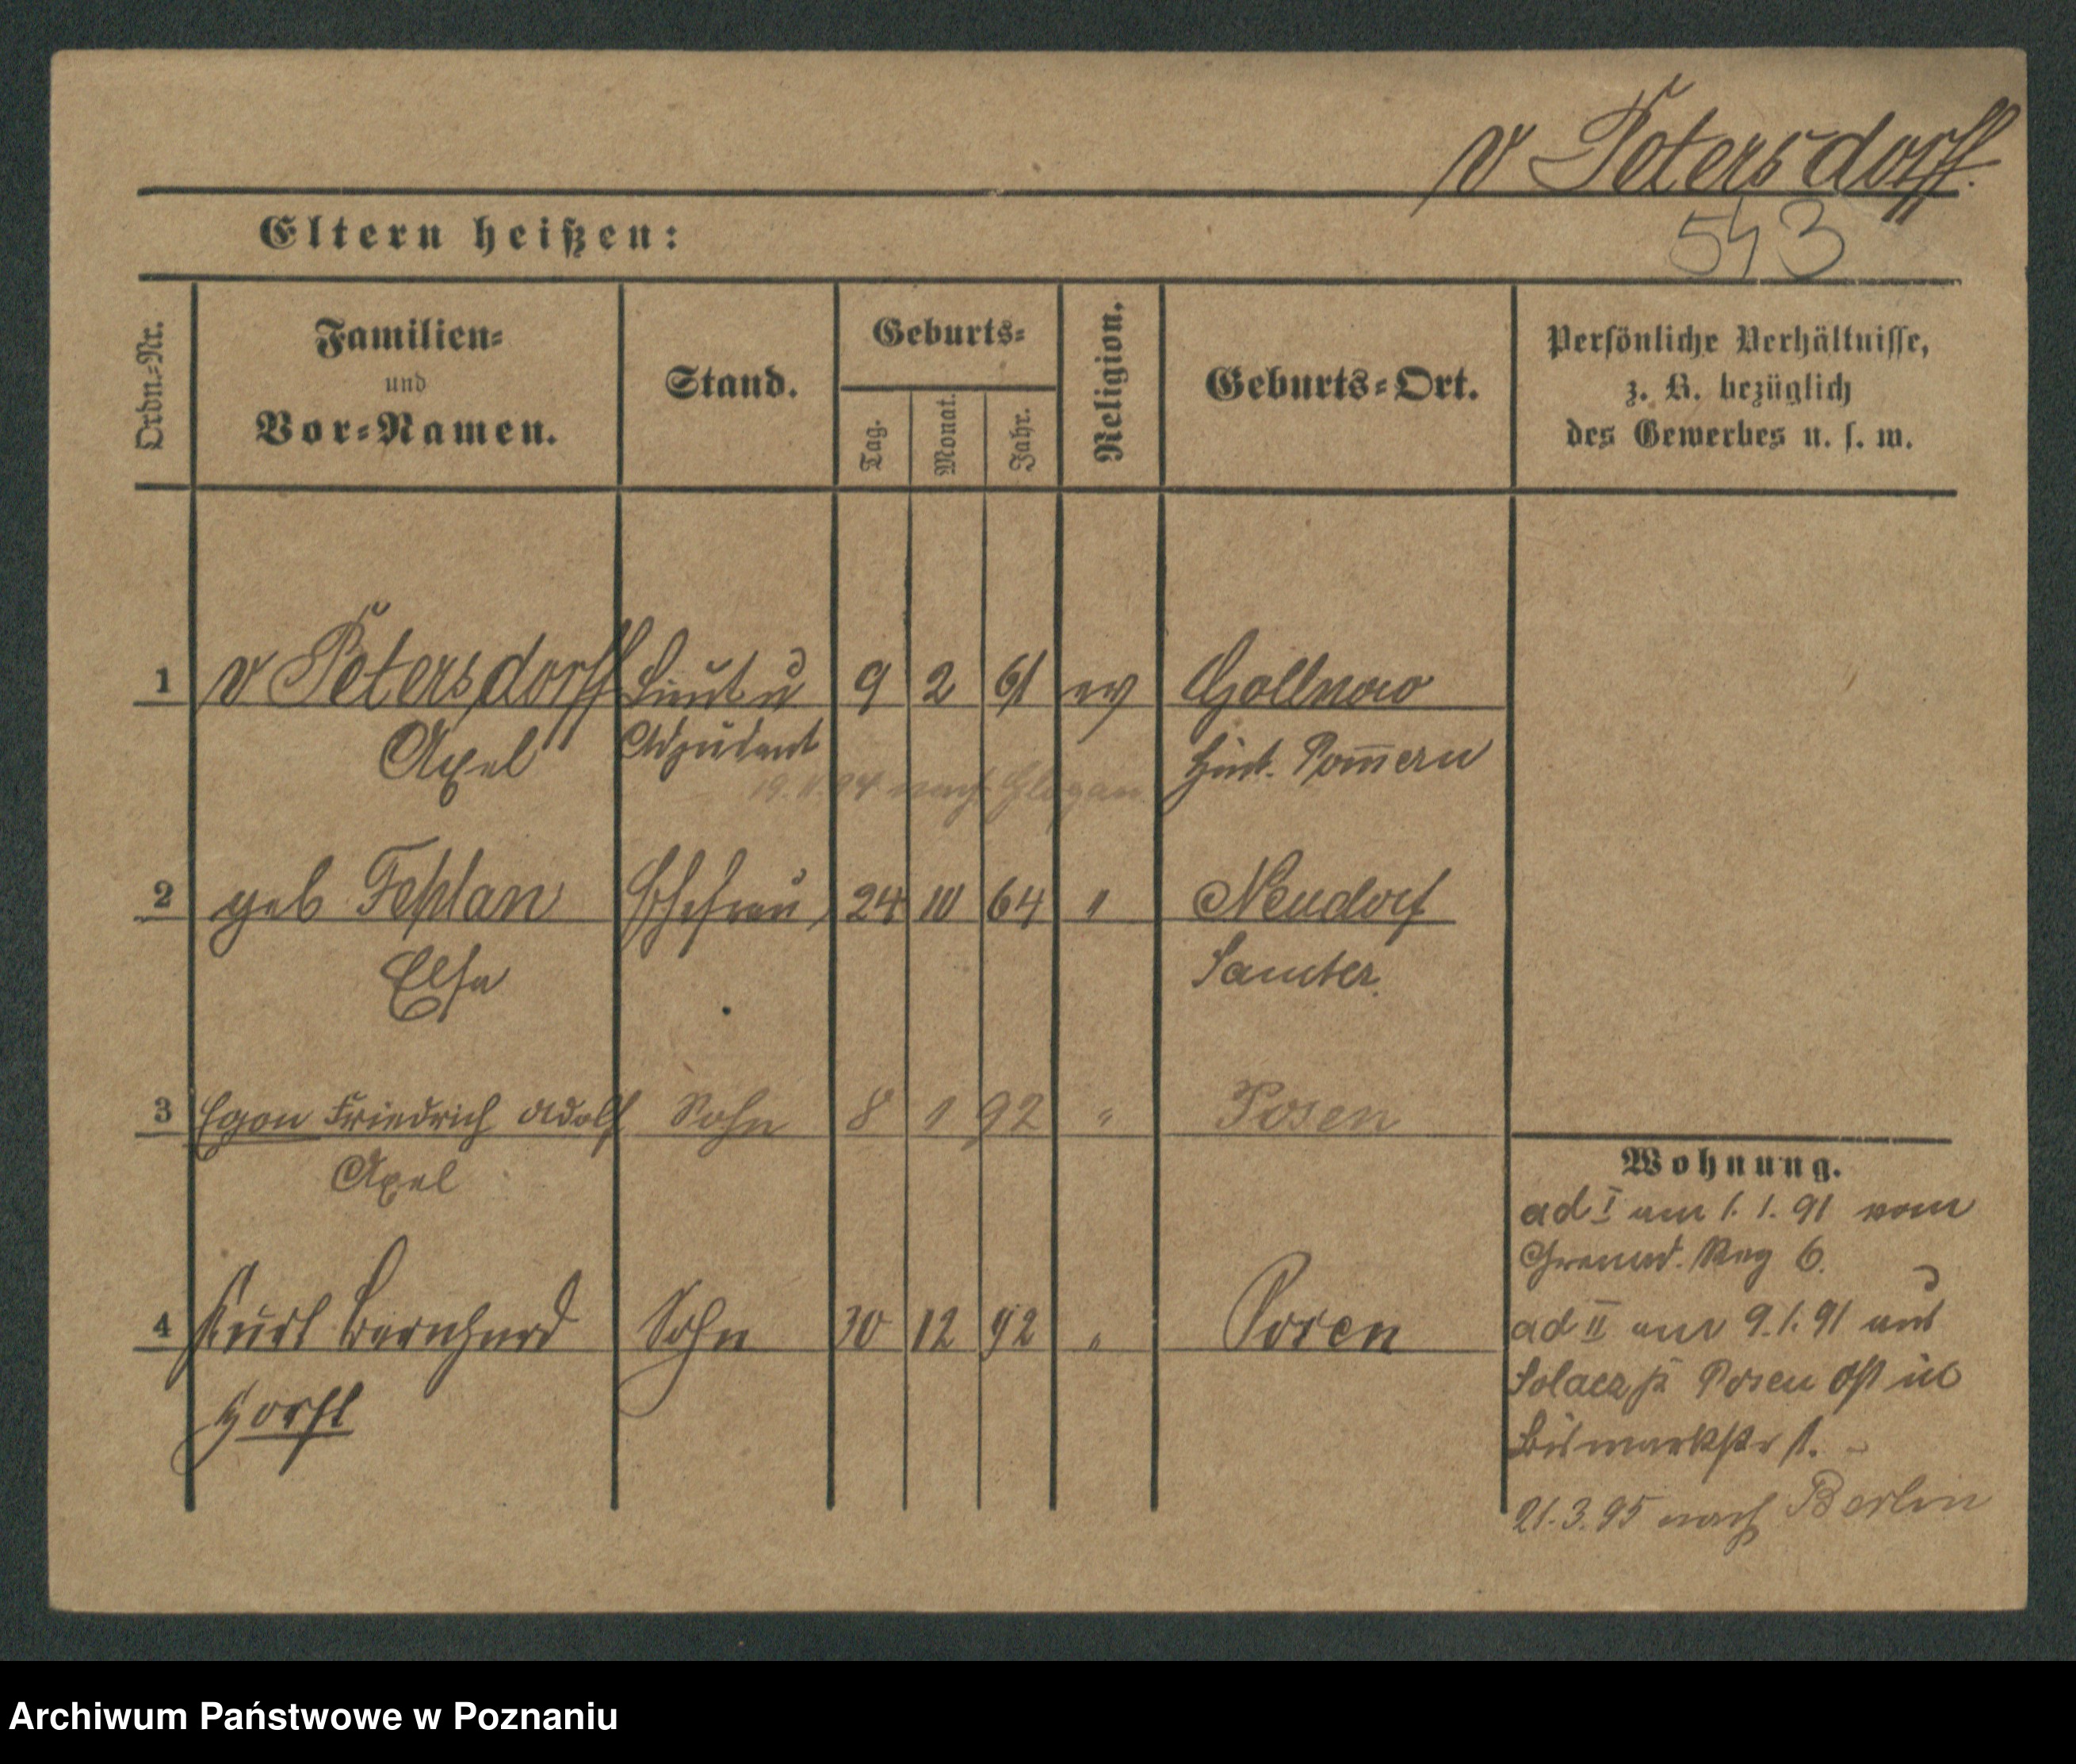 v Petersdorff.
543
Eltern heißen:
Ordn.=Nr.
Familien=
und
Vor=Namen.
Stand.
Geburts=
Tag.
Monat.
Jahr.
Religion.
Geburts=Ort.
Persönliche Verhältnisse,
z. B. bezüglich
des Gewerbes u. s. w.
1 v Petersdorff Lieut u 9 2 61 ev Gollnow
Axel Adjudant Hint. Pom̅ern
19. 11. 94 nach Glogau
2 geb Ehefrau 24 10 64 " Neudorf
Elsa Samter.
3 Egon Friedrich Adolf Sohn 8 1 92 " Posen
Axel
4 Kurt Bernhard Sohn 30 12 92 " Posen
Horst
Wohnung.
ad I am 1. 1. 91 vom
Grenad. Reg 6.
ad II am 9. 1. 91 aus
Solacz Posen Ost in
Bismarkstr 1.
21. 3. 95 nach Berlin
Archiwum Państwowe w Poznaniu